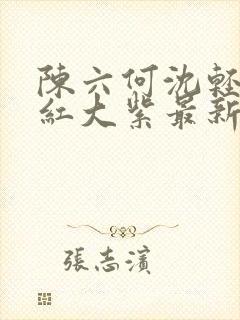 陳六何沈輕
紅大紫最新
張志濱